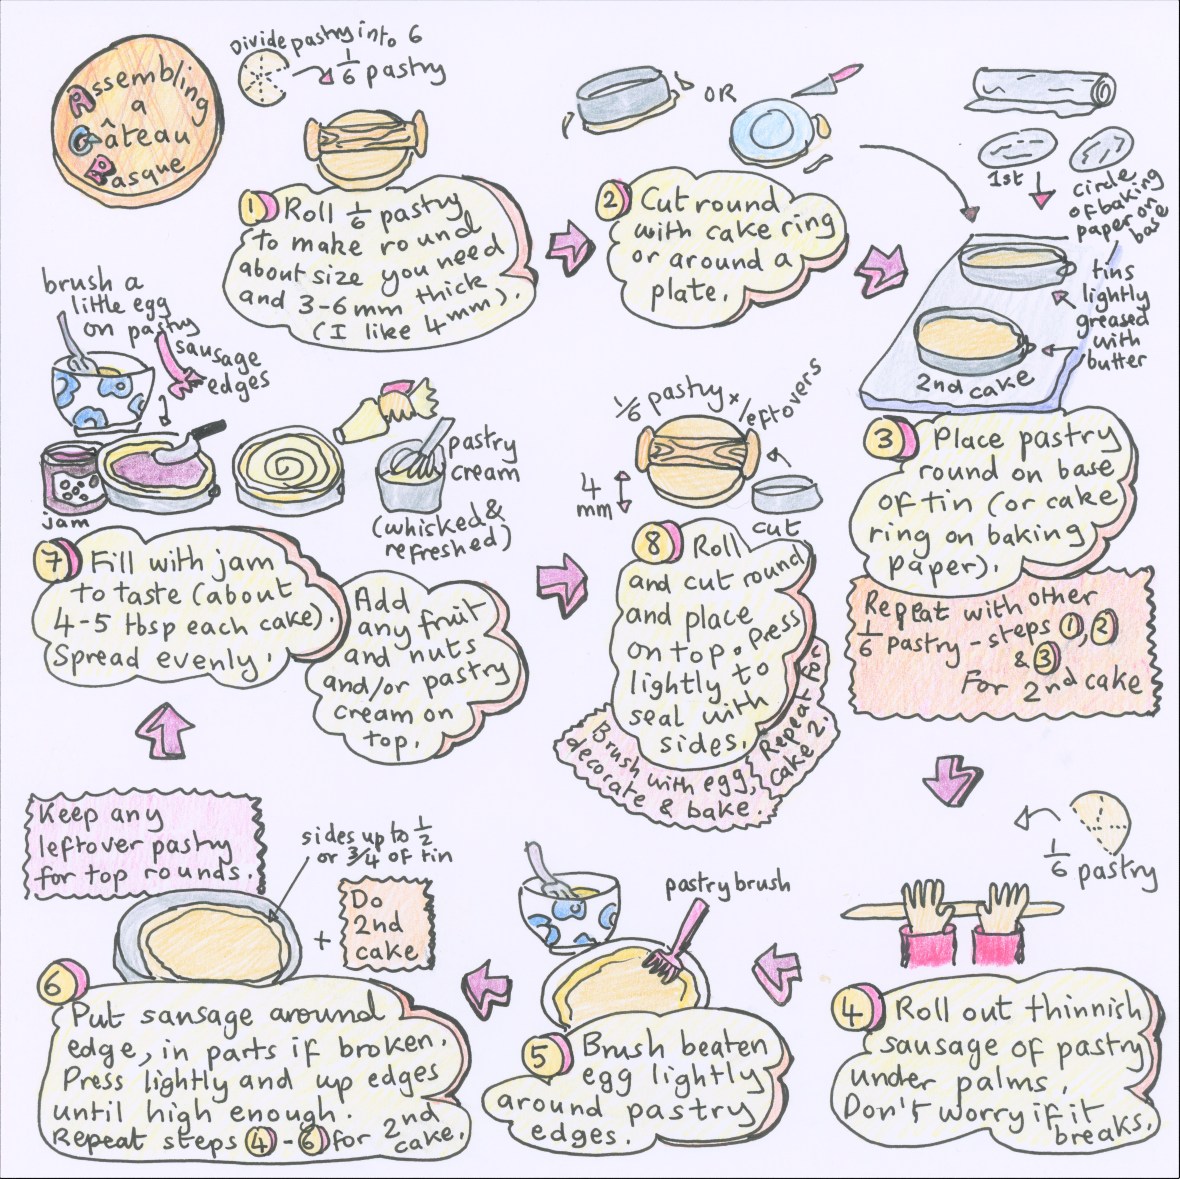 Assembling
a
Gâteau
Basque
Divide pastry into 6
1/6 pastry
1 Roll 1/6 pastry
to make round
about size you need
and 3-6mm thick
(I like 4mm).
OR
2 Cut round
with cake ring
or around a
plate.
1st
circle
of baking
paper on
base
tins
lightly
greased
with
butter
2nd cake
3 Place pastry
round on base
of tin (or cake
ring on baking
paper).
Repeat with other
1/6 pastry - steps 1, 2
& 3
For 2nd cake
1/6 pastry
4 Roll out thinnish
sausage of pastry
under palms.
Don't worry if it
breaks.
pastry brush
5 Brush beaten
egg lightly
around pastry
edges.
Keep any
leftover pastry
for top rounds.
sides up to 1/2
or 3/4 of tin
+
Do
2nd
cake
6 Put sausage around
edge, in parts if broken.
Press lightly and up edges
until high enough.
Repeat steps 4 - 6 for 2nd
cake.
brush a
little egg
on pastry
sausage
edges
jam
pastry
cream
(whisked &
refreshed)
7 Fill with jam
to taste (about
4-5 tbsp each cake).
Spread evenly.
Add
any fruit
and nuts
and/or pastry
cream on
top.
1/6 pastry + leftovers
4
mm
cut
8 Roll
and cut round
and place
on top. Press
lightly to
seal with
sides.
Brush with egg,
decorate & bake.
Repeat for
cake 2.